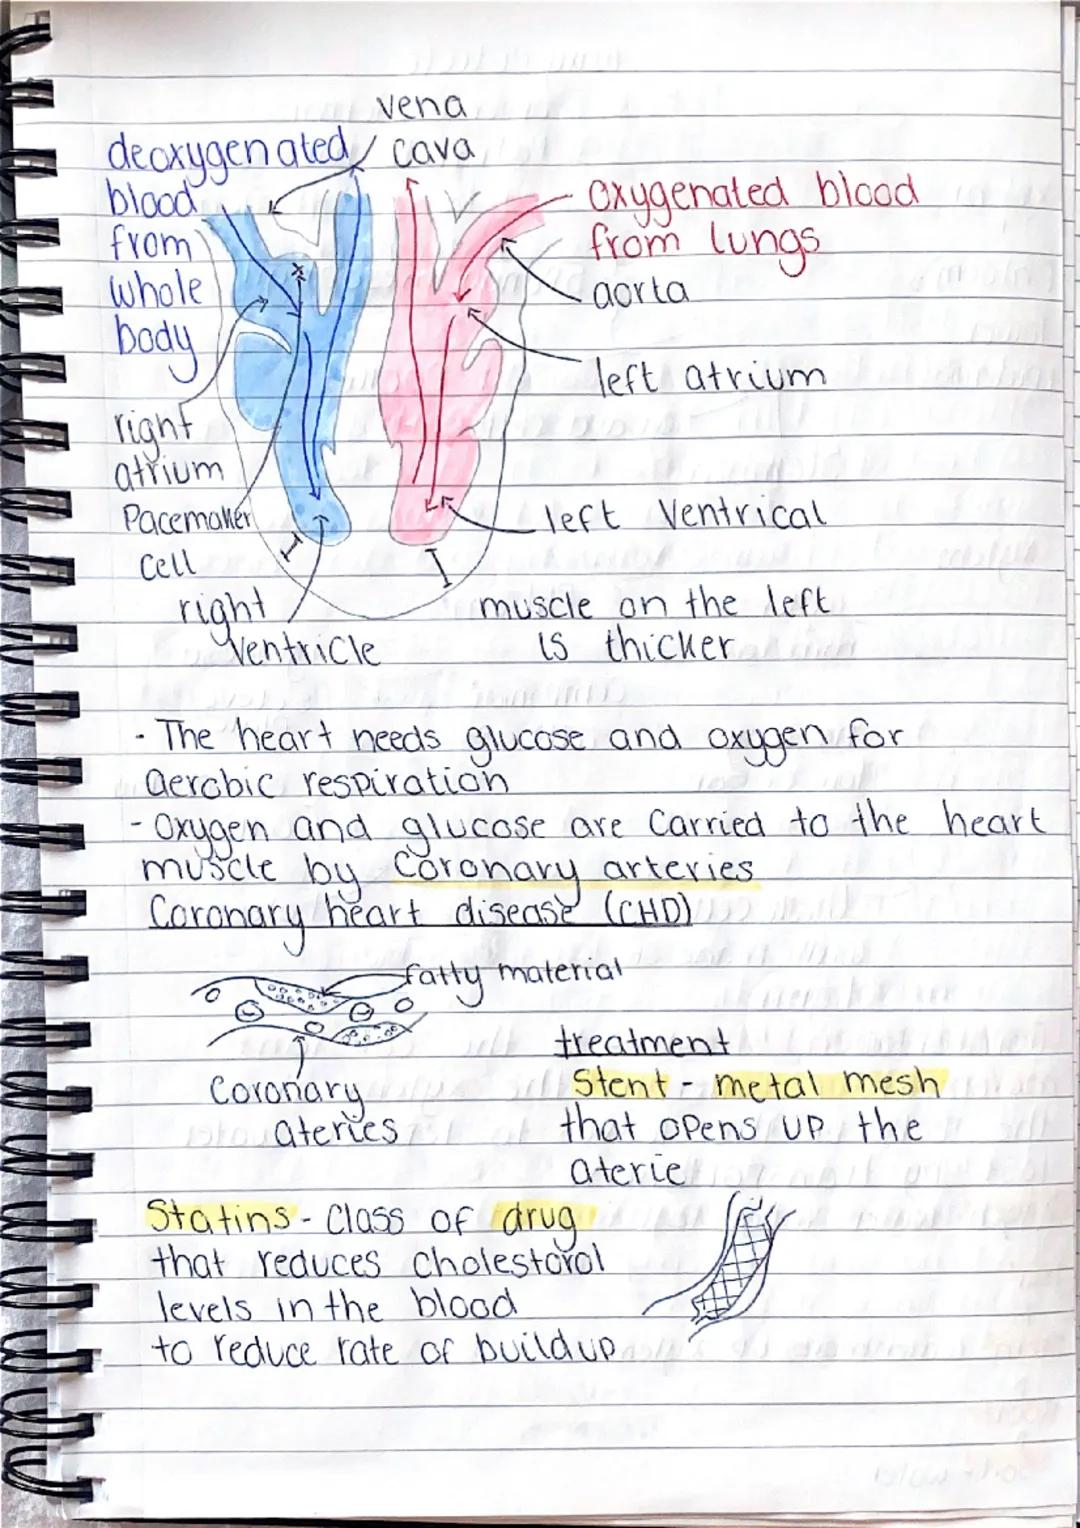 vena
cava
deoxygenated
blood
from
whole
body
oxygenated blood
from lungs
aorta
left atrium
right
atrium
Pacemaker
cell
left Ventrical
right
Ventricle
muscle on the left
is thicker
- The heart needs glucose and oxygen for
aerobic respiration
- Oxygen and glucose are Carried to the heart
muscle by Coronary arteries
Coronary heart disease (CHD)
fatty material
Coronary
ateries
treatment
Stent - metal mesh
that opens up the
aterie
Statins - Class of drug
that reduces cholestorol
levels in the blood
to reduce rate of buildup